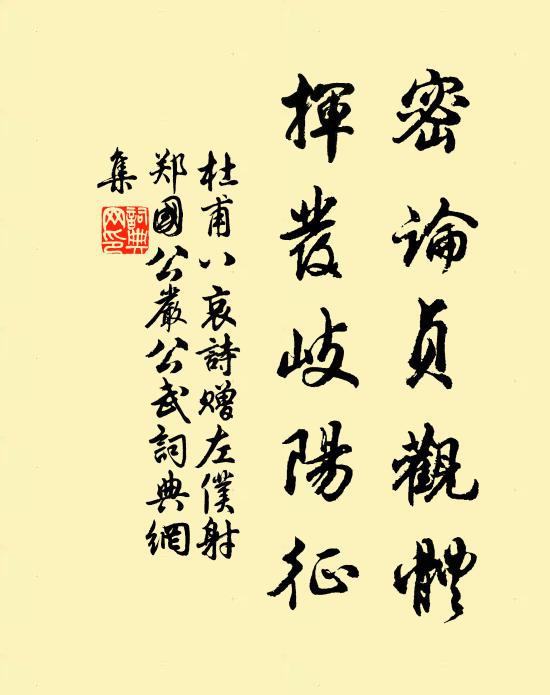 密論貞觀體
揮發岐陽征
杜甫八哀詩赠左僕射
郑國公嚴公武詞典網
集
詞典网印